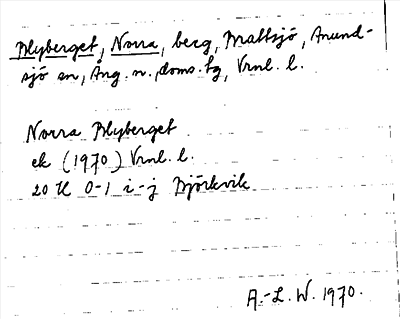 Blyberget, Norra, berg, Brattsjö, Anund-
sjö sn, Ång. n., doms. tg, Vrnl. l.
Norra Blyberget
ek (1970) Vrnl. l.
20 H 0-1 i-j Björkvik
A.-L. W. 1970.